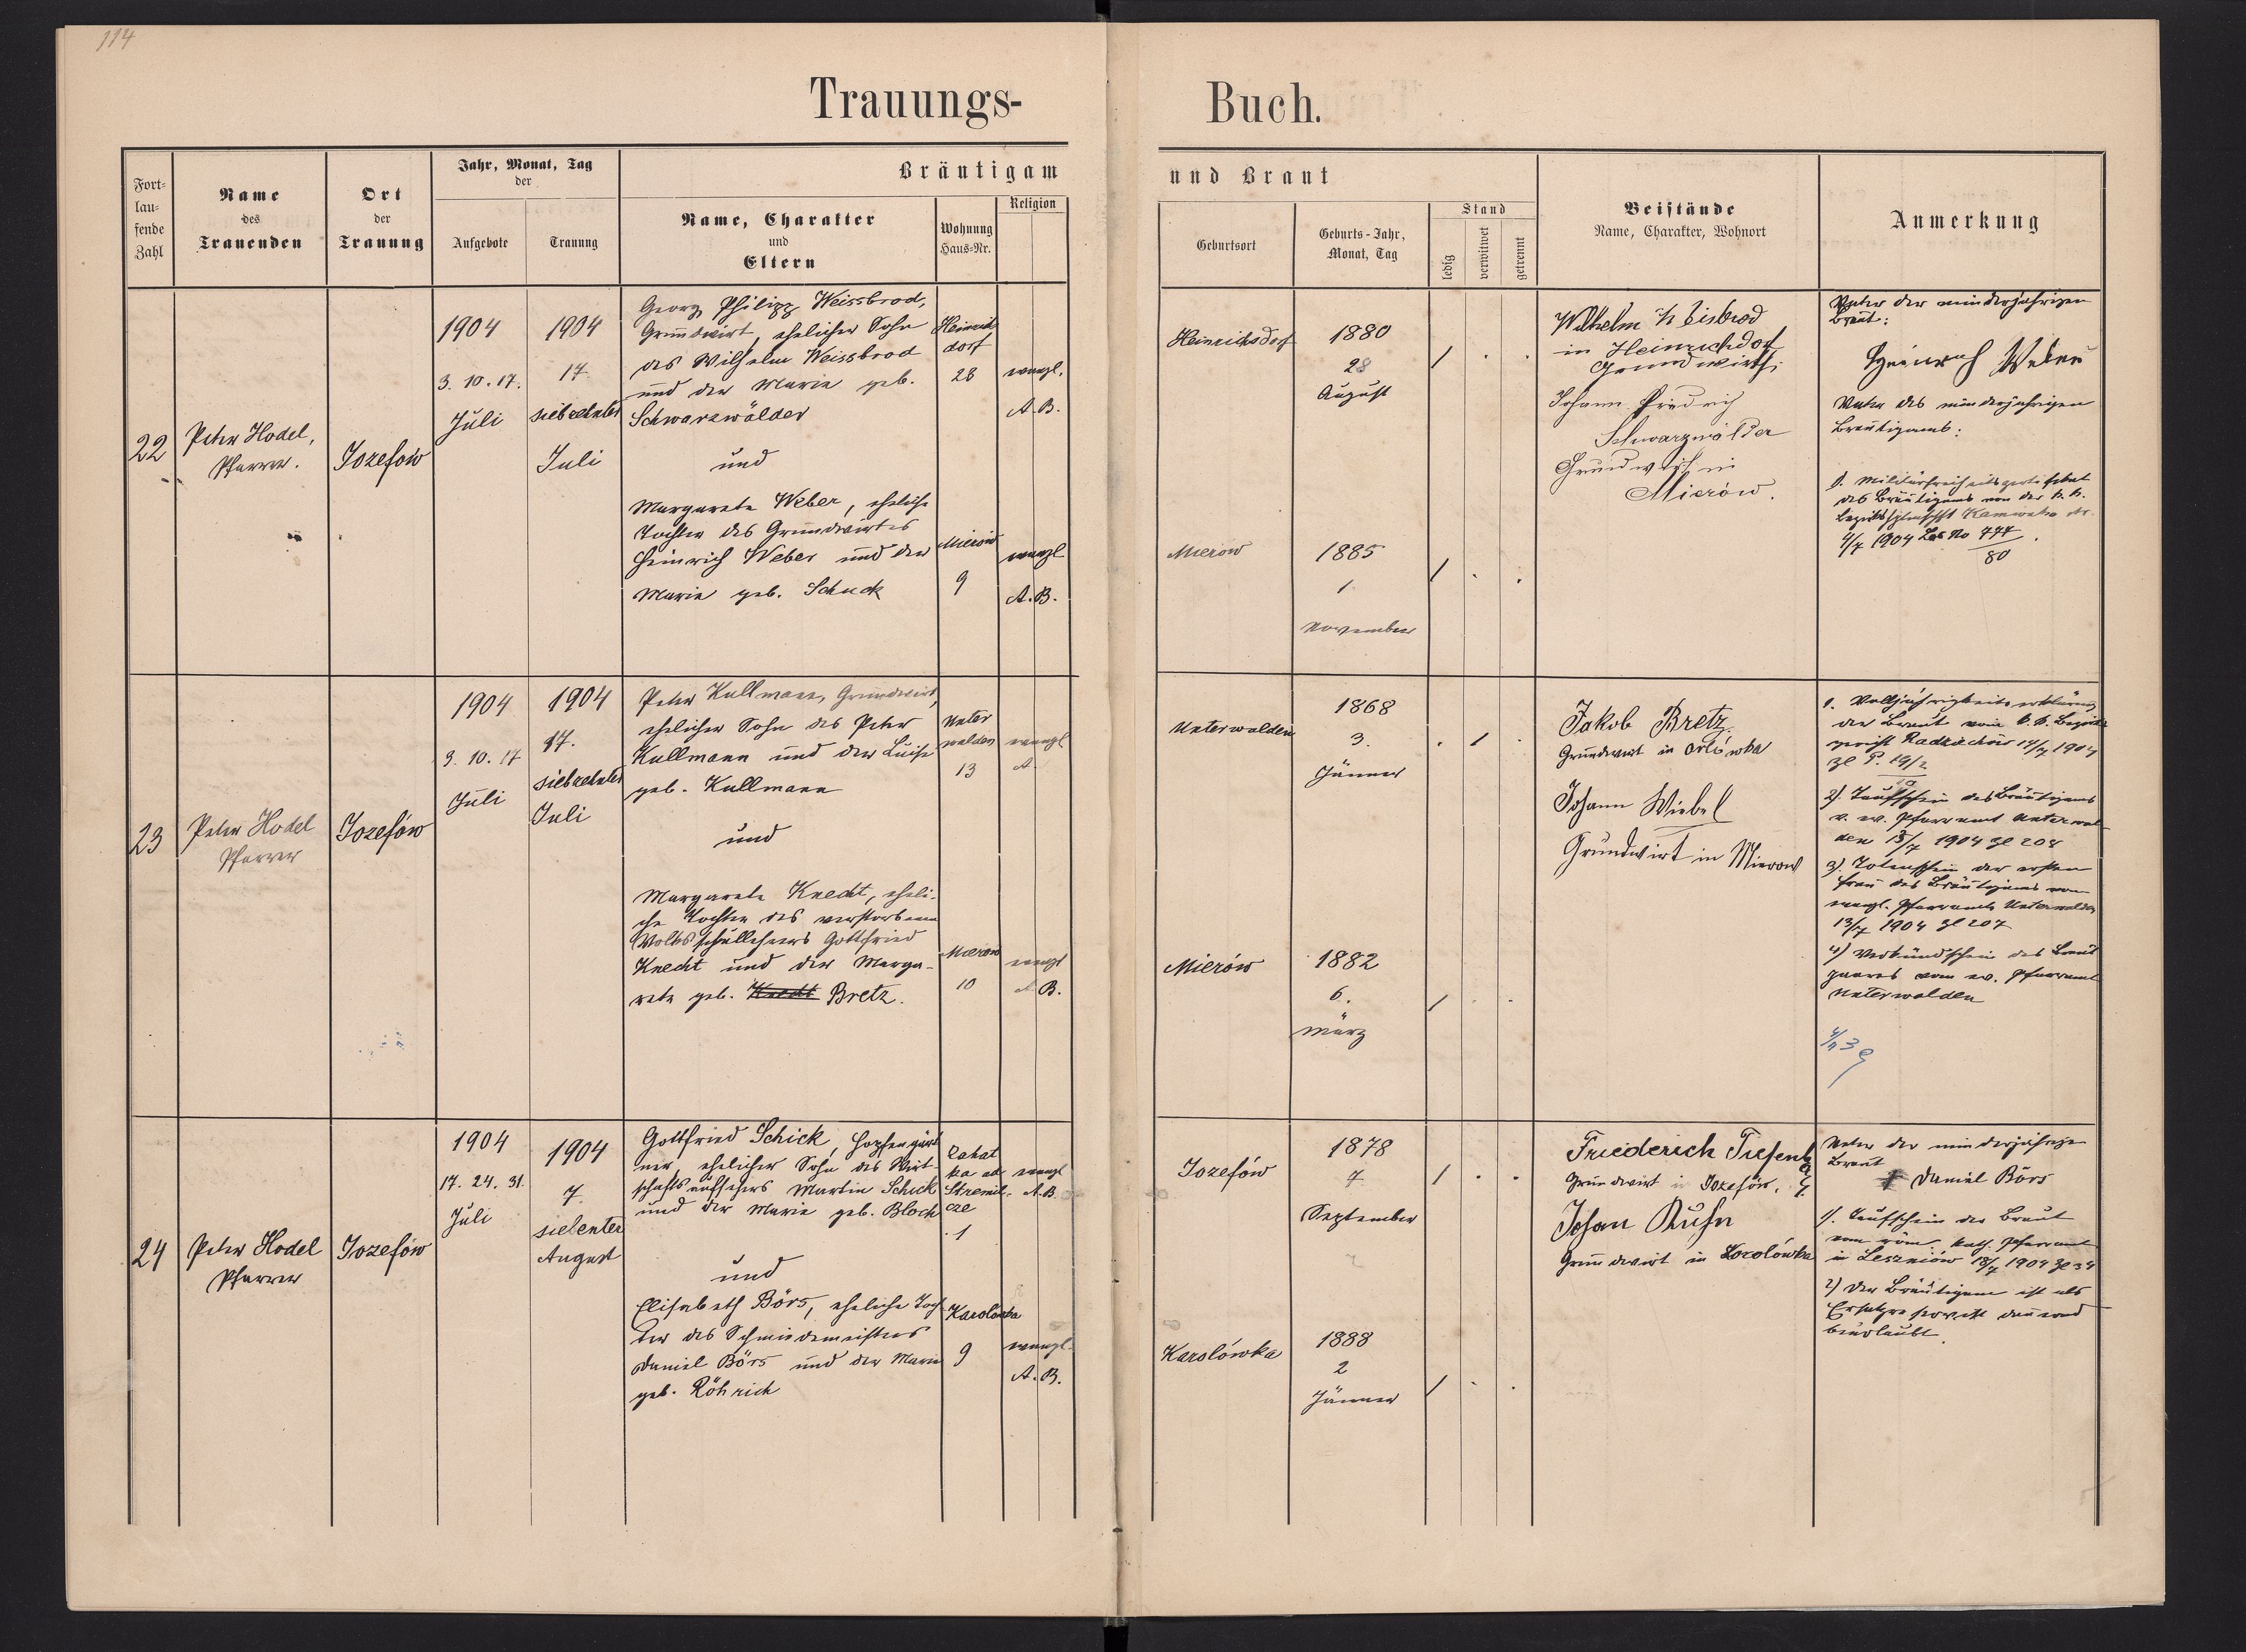 114
Trauungs-
Buch.
Fort-
lau-
fende
Zahl
Name
des
Trauenden
Ort
der
Trauung
Jahr, Monat, Tag
der
Aufgebote
Trauung
Bräutigam
Name, Charakter
und
Eltern
Wohnung
Haus-Nr.
Religion
und Braut
Geburtsort
Geburts-Jahr,
Monat, Tag
Stand
ledig
verwitwet
getrennt
Beistände
Name, Charakter, Wohnort
Anmerkung
22
Peter Hodel,
Pfarrer.
Jozefow
1904
3. 10. 17.
Juli
1904
17
siebzehnter
Juli
Georg Philipp Weissbrod,
Grundwirt, ehelicher Sohn
des Wilhelm Weissbrod
und der Marie geb.
Schwarzwälder
und
Margareta Weber, eheliche
Tochter des Grundwirtes
Heinrich Weber und der
Marie geb. Schuck
Heinrich
dorf
28
evangl.
A. B.
Mierow
9
evangl
A. B.
Heinrichsdorf
1880
28
August
Mierow
1885
1
November
Wilhelm
in Heinrichdorf
Grundwirth
Johann Friedrich
Schwarzwälder
Grundwirt in
Mierów.
Vater der minderjährigen
Braut:
Heinrich Weber
Vater des minderjährigen
Bräutigams:
des Bräutigams von der k. k.
4/7 1904 No 777
80
23
Peter Hodel
Pfarrer
Jozefów
1904
3. 10. 17
Juli
1904
17.
siebzehnter
Juli
Peter Kullmann, Grundwirt,
ehelicher Sohn des Peter
Kullmann und der Luise
geb. Kullmann
und
Margareta Knecht, eheli-
che Tochter des verstorbenen
Volksschullehrers Gottfried
Knecht und der Marga-
reta geb. Knecht Bretz.
Unter
walden
13
evangl
A.
Mierow
10
evangl
A. B.
Unterwalden
1868
3.
Jänner
Mierów
1882
6.
März
Jakob Bretz
Grundwirt in
Johann Wiebel
Grundwirt in Mierow
1. Volljährigkeitserklärung
der Braut vom k. k. Bezirks
gericht Radziechów 14/7 1904
Zl P. 19/2
2). Taufschein des Bräutigams
v. ev. Pfarramt Unterwal-
den 13/7 1904 Zl 208
3). Totenschein der ersten
Frau des Bräutigams vom
evangl. Pfarramte Unterwalden
13/7 1904 Zl 207
4) Verkündschein des Braut
paares vom ev. Pfarramt
Unterwalden
24
Peter Hodel
Pfarrer
Jozefów
1904
17. 24. 31.
Juli
1904
7.
siebenter
August
Gottfried Schick, Hopfengärt
ner, ehelicher Sohn des Wirt-
schaftsaufsehers Martin Schick
und der Marie geb. Bloch
und
Elisabeth Börs, eheliche Toch-
ter des Schmiedemeisters
Daniel Börs und der Marie
geb. Röhrich
ka ad
Stremil-
cze
1
evangl
A. B.
Karolówka
9
evangl.
A. B.
Jozefów
1878
7
September
Karolówka
1888
2
Jänner
Friederich
Grundwirt in Jozefów.
Johan Kuhn
Grundwirt in
Vater der minderjährigen
Braut
Daniel Börs
1). Taufschein der Braut
vom röm. kath. Pfarramt
in Leszniów 18/7 1904 Zl 34
2) Der Bräutigam ist als
Ersatzreservist dauernd
beurlaubt.